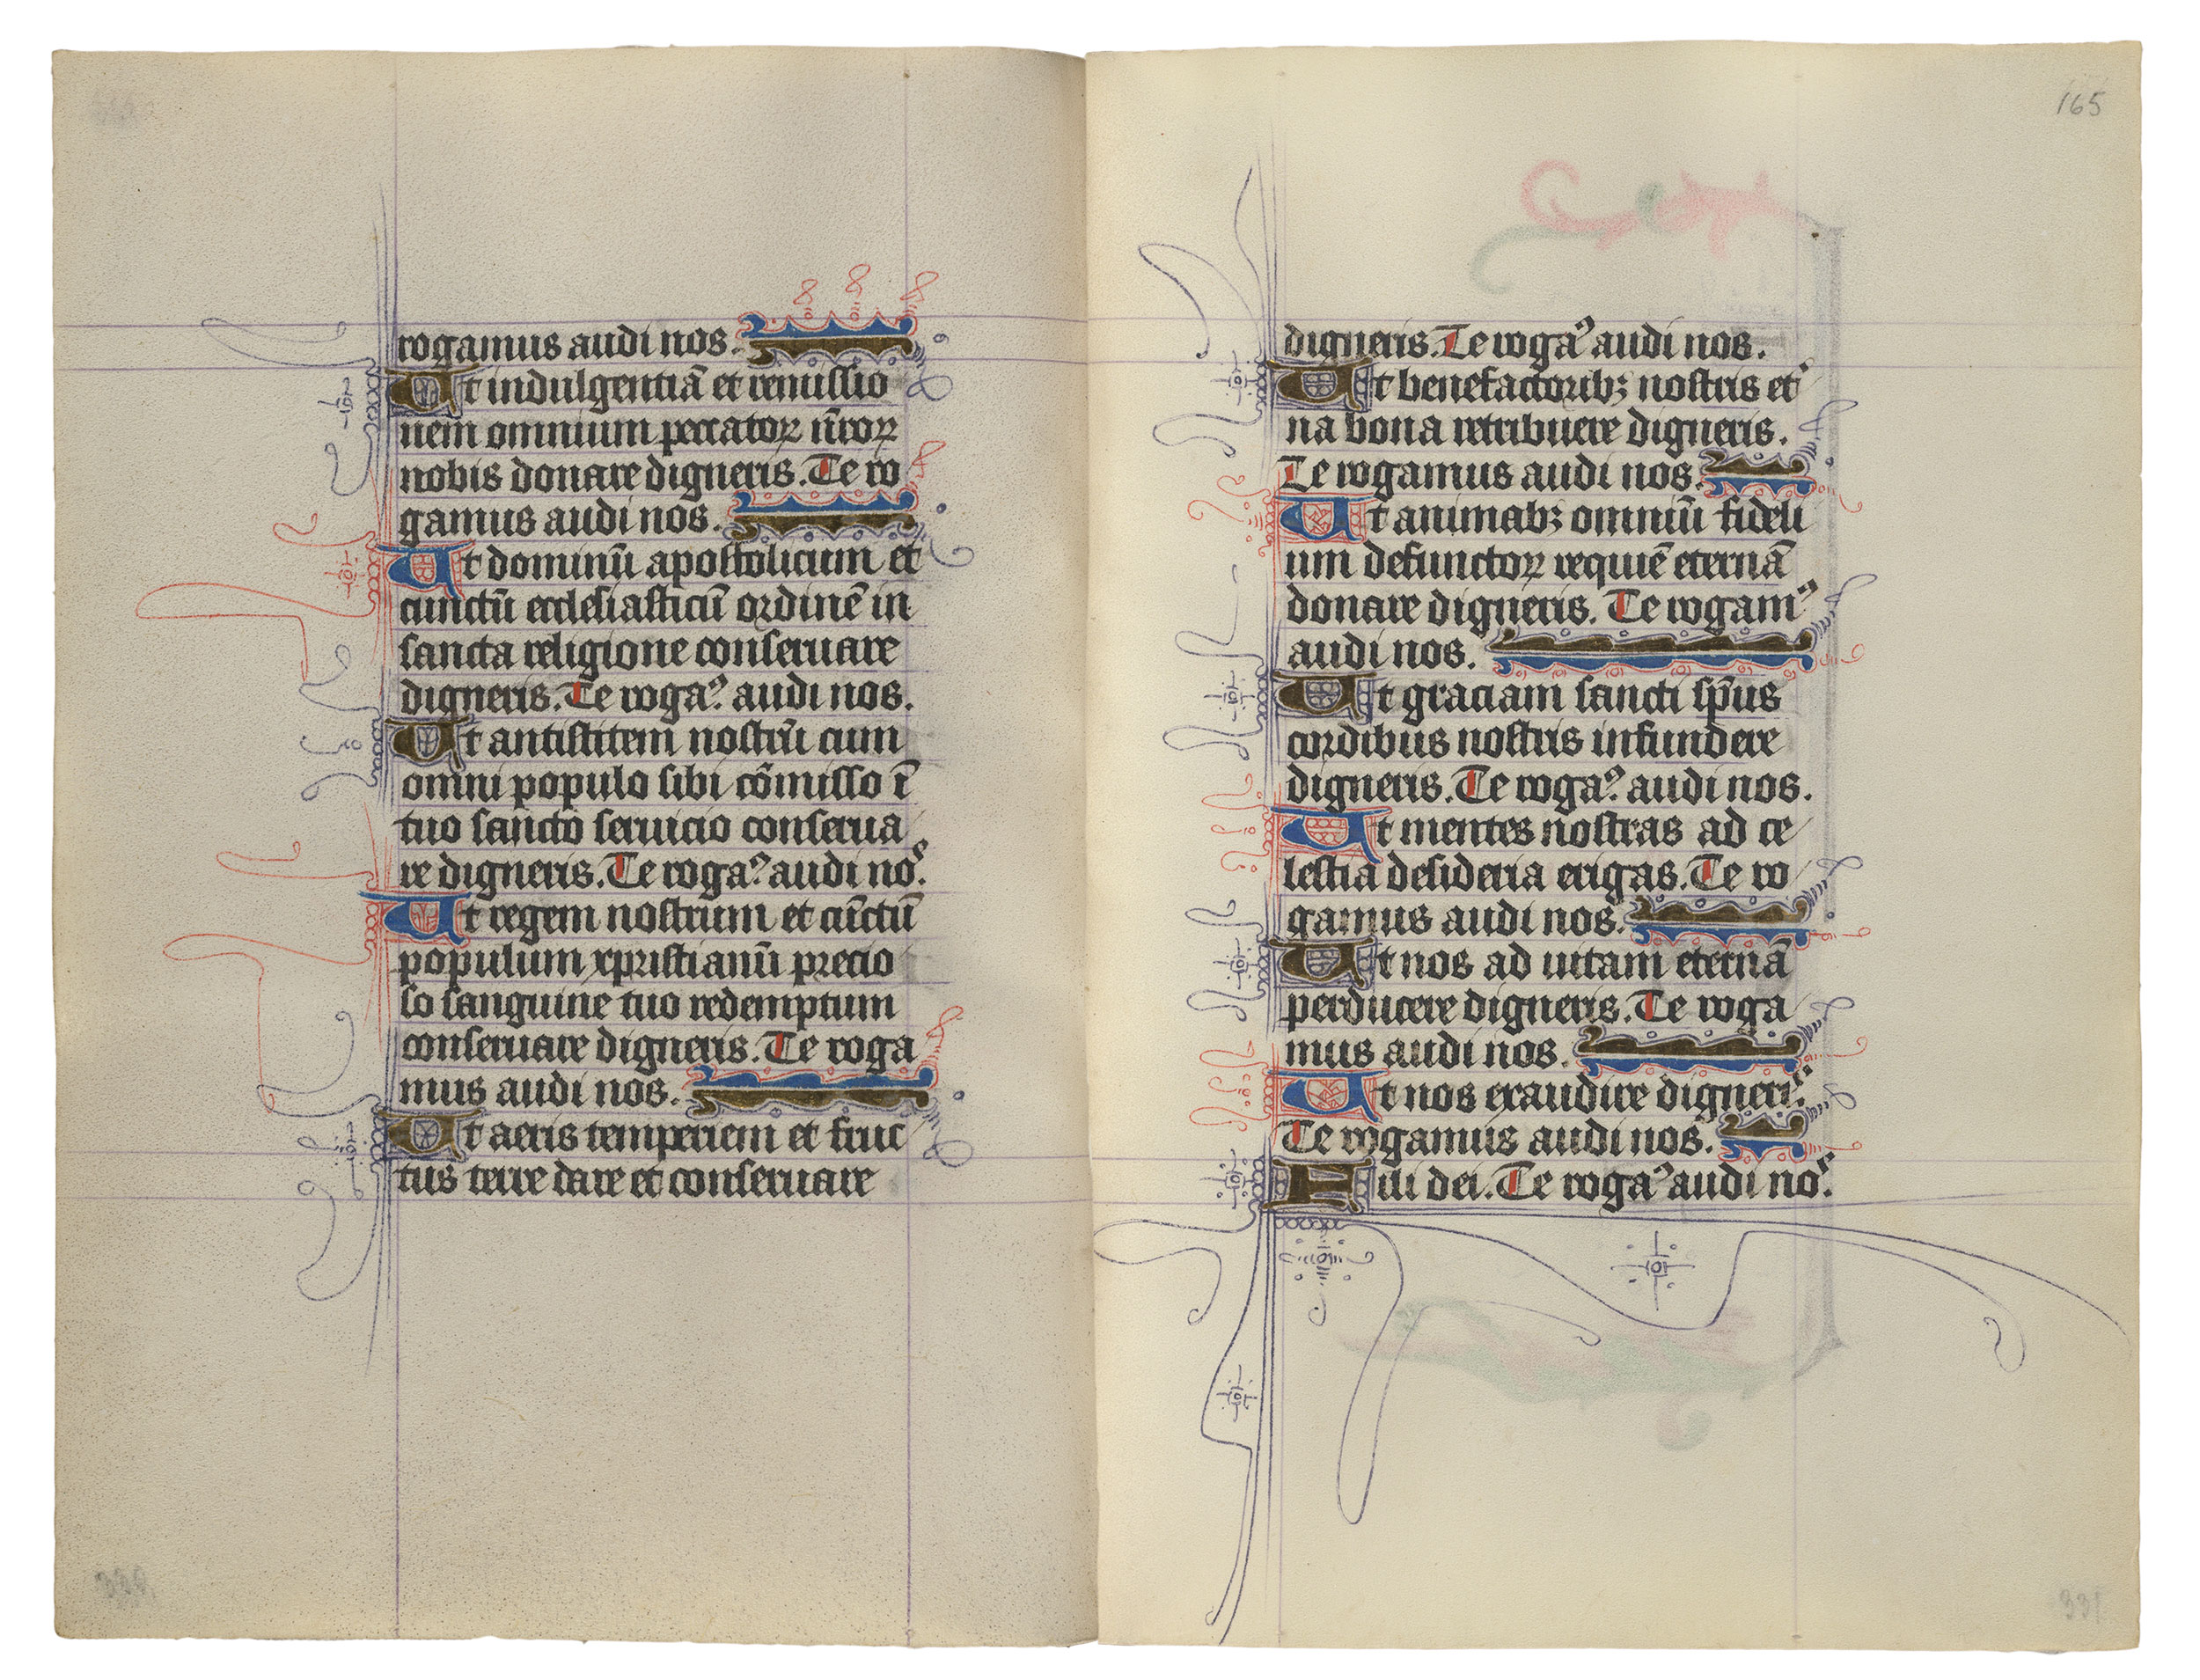 rogamus audi nos.
Ut indulgentiā et remissio
nem omnium peccatoꝝ nr̄oꝝ
nobis donare digneris. Te ro
gamus audi nos.
Ut dominū apostolicum et
cunctū ecclesiasticū ordinē in
sancta religione conseruare
digneris. Te rogaꝰ audi nos.
Ut antistitem nostrū cum
omni populo sibi cōmisso ī
tuo sancto seruicio conserua
re digneris. Te rogaꝰ audi nos.
Ut regem nostrum et cūctū
populum xpristianū precio
so sanguine tuo redemptum
conseruare digneris. Te roga
mus audi nos.
Ut aeris temperiem et fruc
tus terre dare et conseruare
165
digneris. Te rogaꝰ audi nos.
Ut benefactoribꝫ nostris et᷒
na bona retribuere digneris.
Te rogamus audi nos.
Ut animabꝫ omniū fideli
um defunctoꝝ requiē eternā
donare digneris. Te rogamꝰ
audi nos.
Ut graciam sancti sp̄us
cordibus nostris infundere
digneris. Te rogaꝰ audi nos.
Ut mentes nostras ad ce
lestia desideria erigas. Te ro
gamus audi nos.
Ut nos ad uitam eternā
perducere digneris. Te roga
mus audi nos.
Ut nos exaudire digneris.
Te rogamus audi nos.
Fili dei. Te rogaꝰ audi nos.
331